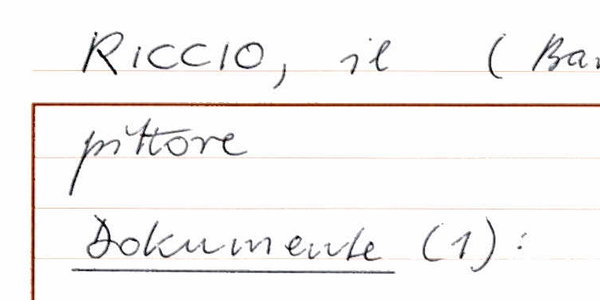 RICCIO, il (Bar
pittore
Dokumente (1):